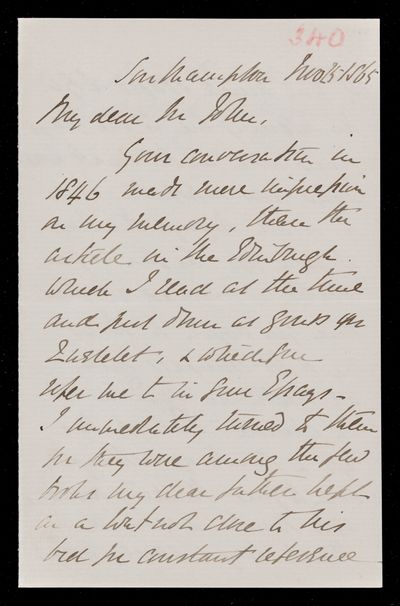 340
Southampton Nov 25 1865
My dear Sir John,
Your conversation in
1846 made more impression
on my memory, than the
article in the Edinburgh
which I read at the time
and put down as yours on
Quetelet, & which you
refer me to in your Essays -
I immediately turned to them
for they were among the few
books my dear father kept
on a what not close to his
bed for constant reference